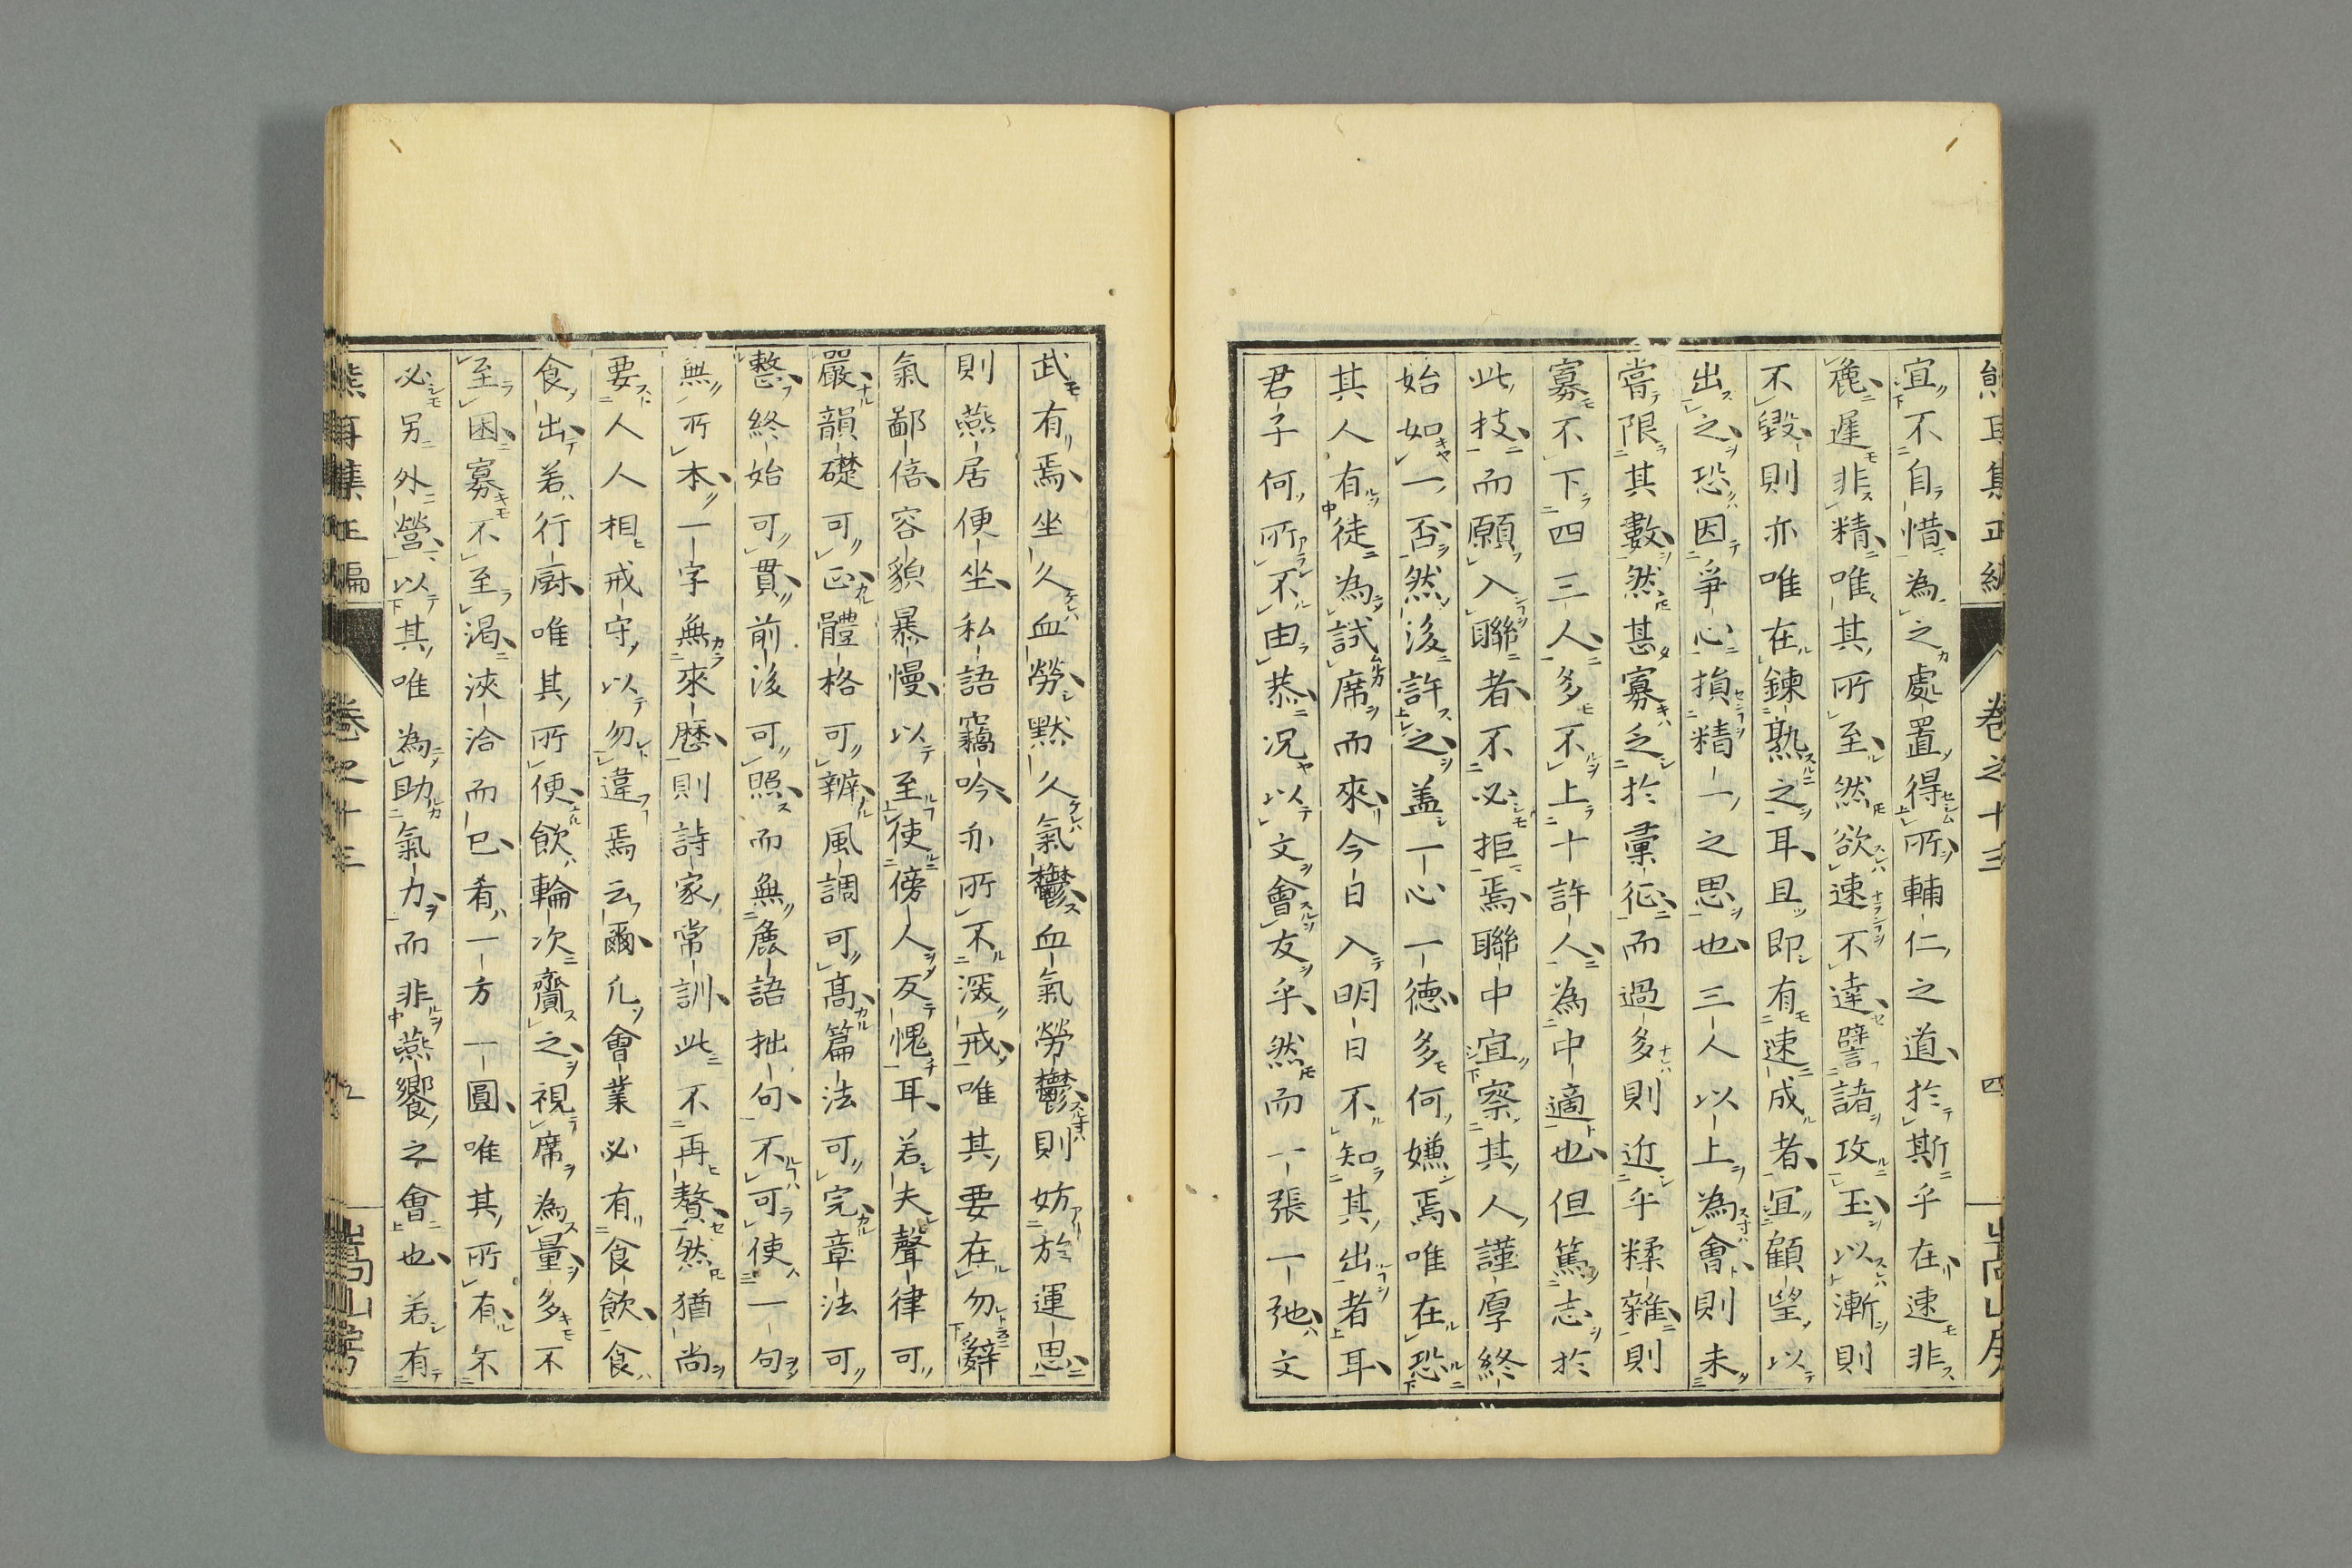 熊耳集正編 卷之十三 四 嵩山房
宜不自惜為之處置得所輔仁之道於斯乎在速非
麁遲非精唯其所至然欲速不達譬諸攻玉以漸則
不毀則亦唯在鍊熟之耳且即有速成者宜顧望以
出之恐因爭心損精一之思也三人以上為會則未
嘗限其數然甚寡乏於彙征而過多則近乎糅雜則
寡不下四三人多不上十許人為中適也但篤志於
此技而願入聯者不必拒焉聯中宜察其人謹厚終
始如一否然後許之盖一心一德多何嫌焉唯在恐
其人有徒為試席而來今日入明日不知其出者耳
君子何所不由恭况以文會友乎然而一張一弛文
武有焉坐久血勞默久氣鬱血氣勞鬱則妨於運思
則燕居便坐私語竊吟亦所不深戒唯其要在勿辭
氣鄙倍容貌暴慢以至使傍人反愧耳若夫聲律可
嚴韻礎可正體格可辨風調可高篇法可完章法可
整終始可貫前後可照而無麁語拙句不可使一句
無所本一字無來歷則詩家常訓此不再贅然猶尚
要人人相戒守以勿違焉云爾凡會業必有食飲食
食出若行厨唯其所便飲輪次齎之視席為量多不
至困寡不至渴浹洽而已肴一方一圓唯其所有不
必另外營以其唯為助氣力而非燕饗之會也若有
熊耳集正編 卷之十三 嵩山房